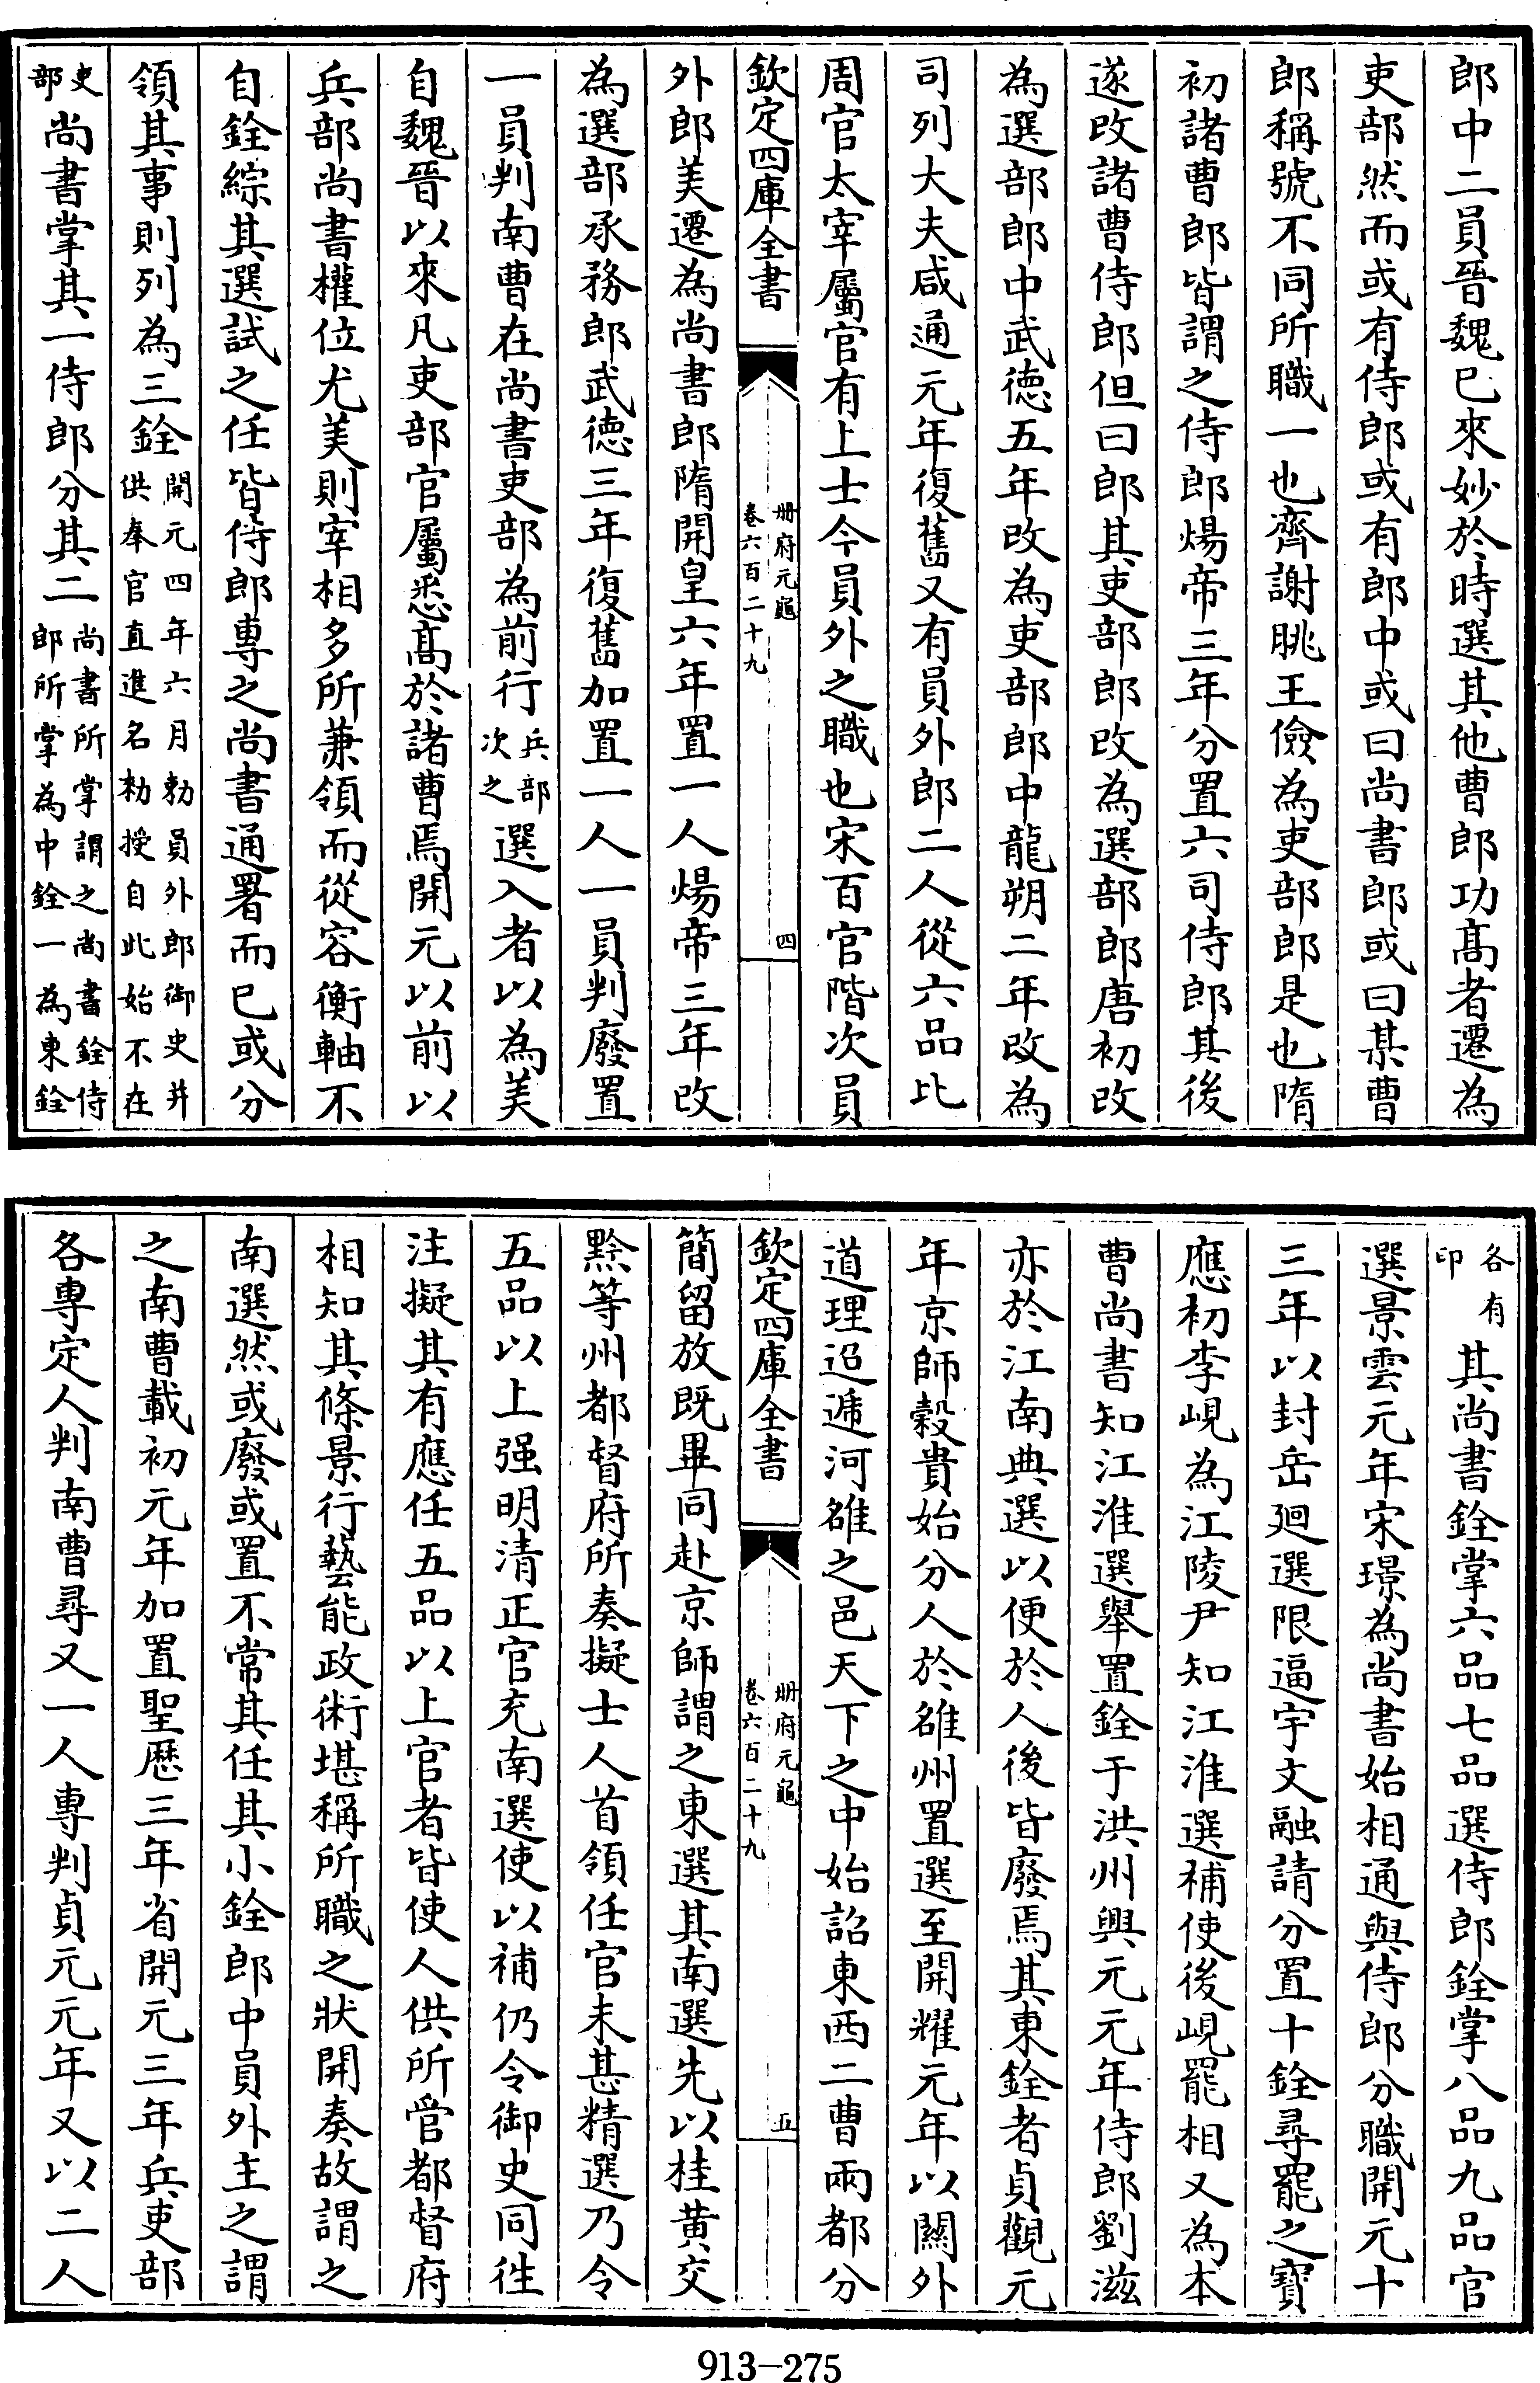 郎中二員晉魏已來妙於時選其他曹郎功髙者遷為
吏部然而或有侍郎或有郎中或曰尚書郎或曰某曹
郎稱號不同所職一也齊謝朓王儉為吏部郎是也隋
初諸曹郎皆謂之侍郎煬帝三年分置六司侍郎其後
遂改諸曹侍郎但曰郎其吏部郎改為選部郎唐初改
為選部郎中武徳五年改為吏部郎中龍朔二年改為
司列大夫咸通元年復舊又有員外郎二人從六品比
周官太宰屬官有上士今員外之職也宋百官階次員
欽定四庫全書
冊府元龜
卷六百二十九
四
外郎美遷為尚書郎隋開皇六年置一人煬帝三年改
為選部承務郎武徳三年復舊加置一人一員判廢置
一員判南曹在尚書吏部為前行兵部次之選入者以為美
自魏晉以來凡吏部官屬悉髙於諸曹焉開元以前以
兵部尚書權位尤美則宰相多所兼領而從容衡軸不
自銓綜其選試之任皆侍郎專之尚書通署而已或分
領其事則列為三銓開元四年六月勑員外郎御史并供奉官直進名勑授自此始不在
吏部尚書掌其一侍郎分其二尚書所掌謂之尚書銓侍郎所掌為中銓一為東銓
各有印其尚書銓掌六品七品選侍郎銓掌八品九品官
選景雲元年宋璟為尚書始相通與侍郎分職開元十
三年以封岳廻選限逼宇文融請分置十銓尋罷之寶
應初李峴為江陵尹知江淮選補使後峴罷相又為本
曹尚書知江淮選舉置銓于洪州興元元年侍郎劉滋
亦於江南典選以便於人後皆廢焉其東銓者貞觀元
年京師穀貴始分人於雒州置選至開耀元年以關外
道理迢遞河雒之邑天下之中始詔東西二曹兩都分
欽定四庫全書
冊府元龜
卷六百二十九
五
簡留放既畢同赴京師謂之東選其南選先以桂黄交
黔等州都督府所奏擬士人首領任官未甚精選乃令
五品以上强明清正官充南選使以補仍令御史同徃
注擬其有應任五品以上官者皆使人供所管都督府
相知其條景行藝能政術堪稱所職之狀開奏故謂之
南選然或廢或置不常其任其小銓郎中員外主之謂
之南曹載初元年加置聖歴三年省開元三年兵吏部
各專定人判南曹尋又一人專判貞元元年又以二人
913-275